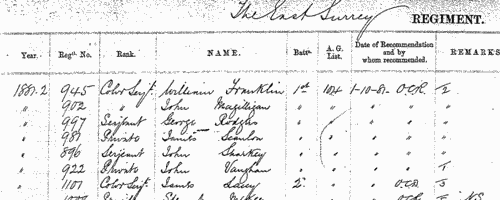 The East Surrey REGIMENT.
Year. Regtl. No. Rank. NAME. Battn. A. G. List. Date of Recommendation and by whom recommended. REMARKS
1881-2 945 Color Serjt. William Franklin 1st 104 1-10-81- O.C.R. 2
" 902 " John Magilligan " " " " "
" 997 Serjeant George Rodgers " " " " "
" 987 Private James Scanlon " " " " "
" 896 Serjeant John Sharkey " " " " "
" 922 Private John Vaughan " " " "
" 1101 Color Serjt. James Lacey 2. " " O.C.R.